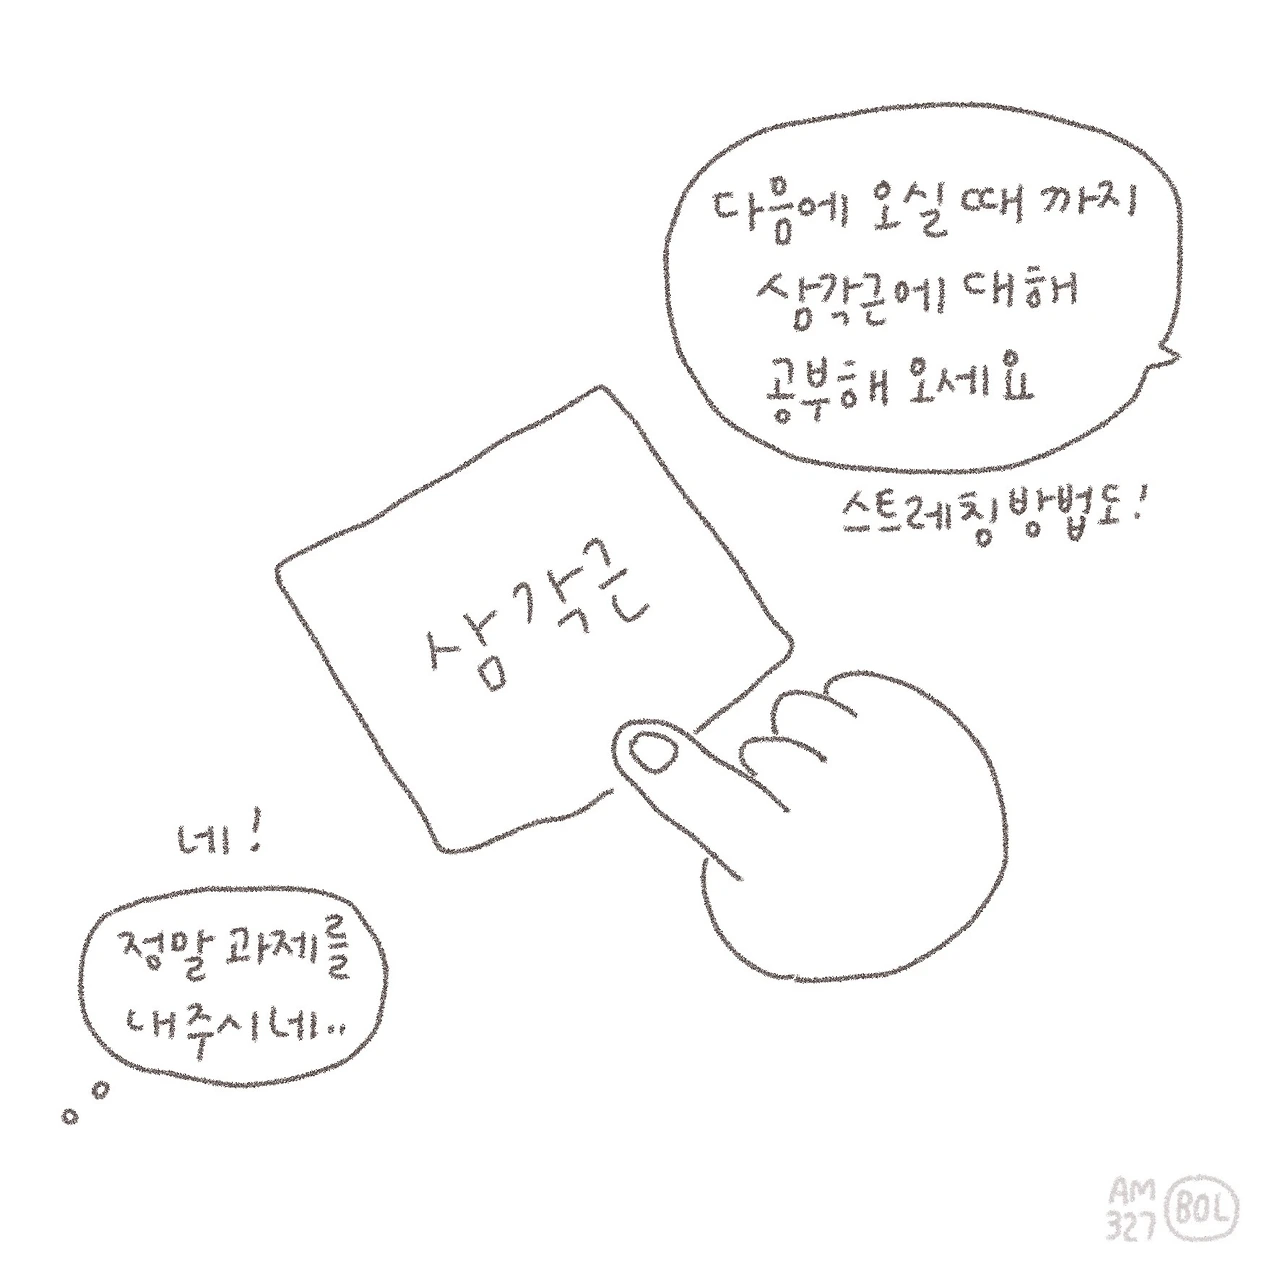 다음에 오실 때 까지
삼각근에 대해
공부해 오세요
스트레칭방법도!
삼각근
네!
정말 과제를
내주시네..
AM
327
BOL